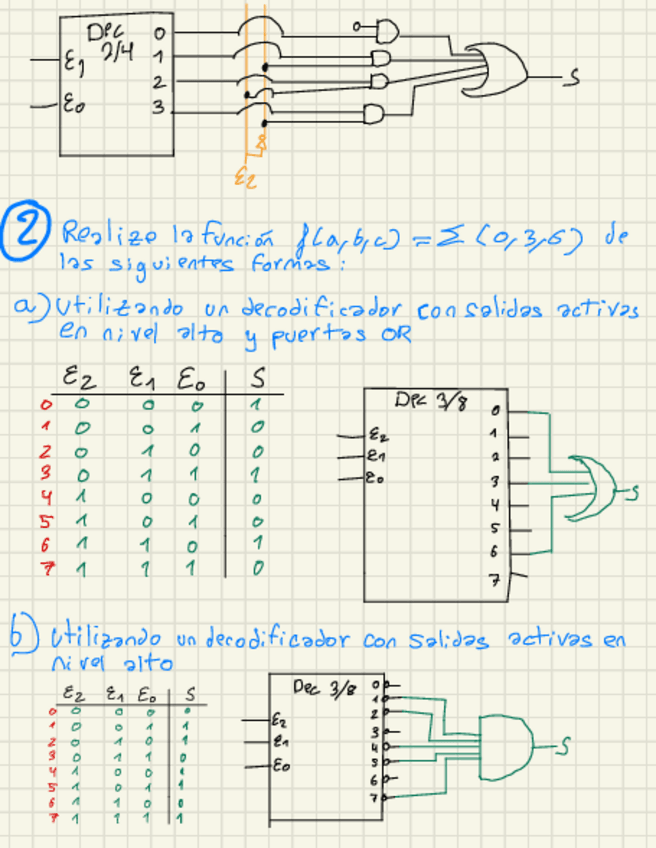 Dec 2/4
E1
E0
0
1
2
3
S
E2
2 Realize la función f(a,b,c) = Σ (0,3,6) de
las siguientes formas:
a) Utilizando un decodificador con salidas activas
en nivel alto y puertas OR
E2 E1 E0 S
0 0 0 0 1
1 0 0 1 0
2 0 1 0 0
3 0 1 1 1
4 1 0 0 0
5 1 0 1 0
6 1 1 0 1
7 1 1 1 0
Dec 3/8
E2
E1
E0
0
1
2
3
4
5
6
7
S
b) Utilizando un decodificador con salidas activas en
nivel alto
E2 E1 E0 S
0 0 0 0 0
1 0 0 1 1
2 0 1 0 1
3 0 1 1 0
4 1 0 0 1
5 1 0 1 1
6 1 1 0 0
7 1 1 1 1
Dec 3/8
E2
E1
E0
0
1
2
3
4
5
6
7
S